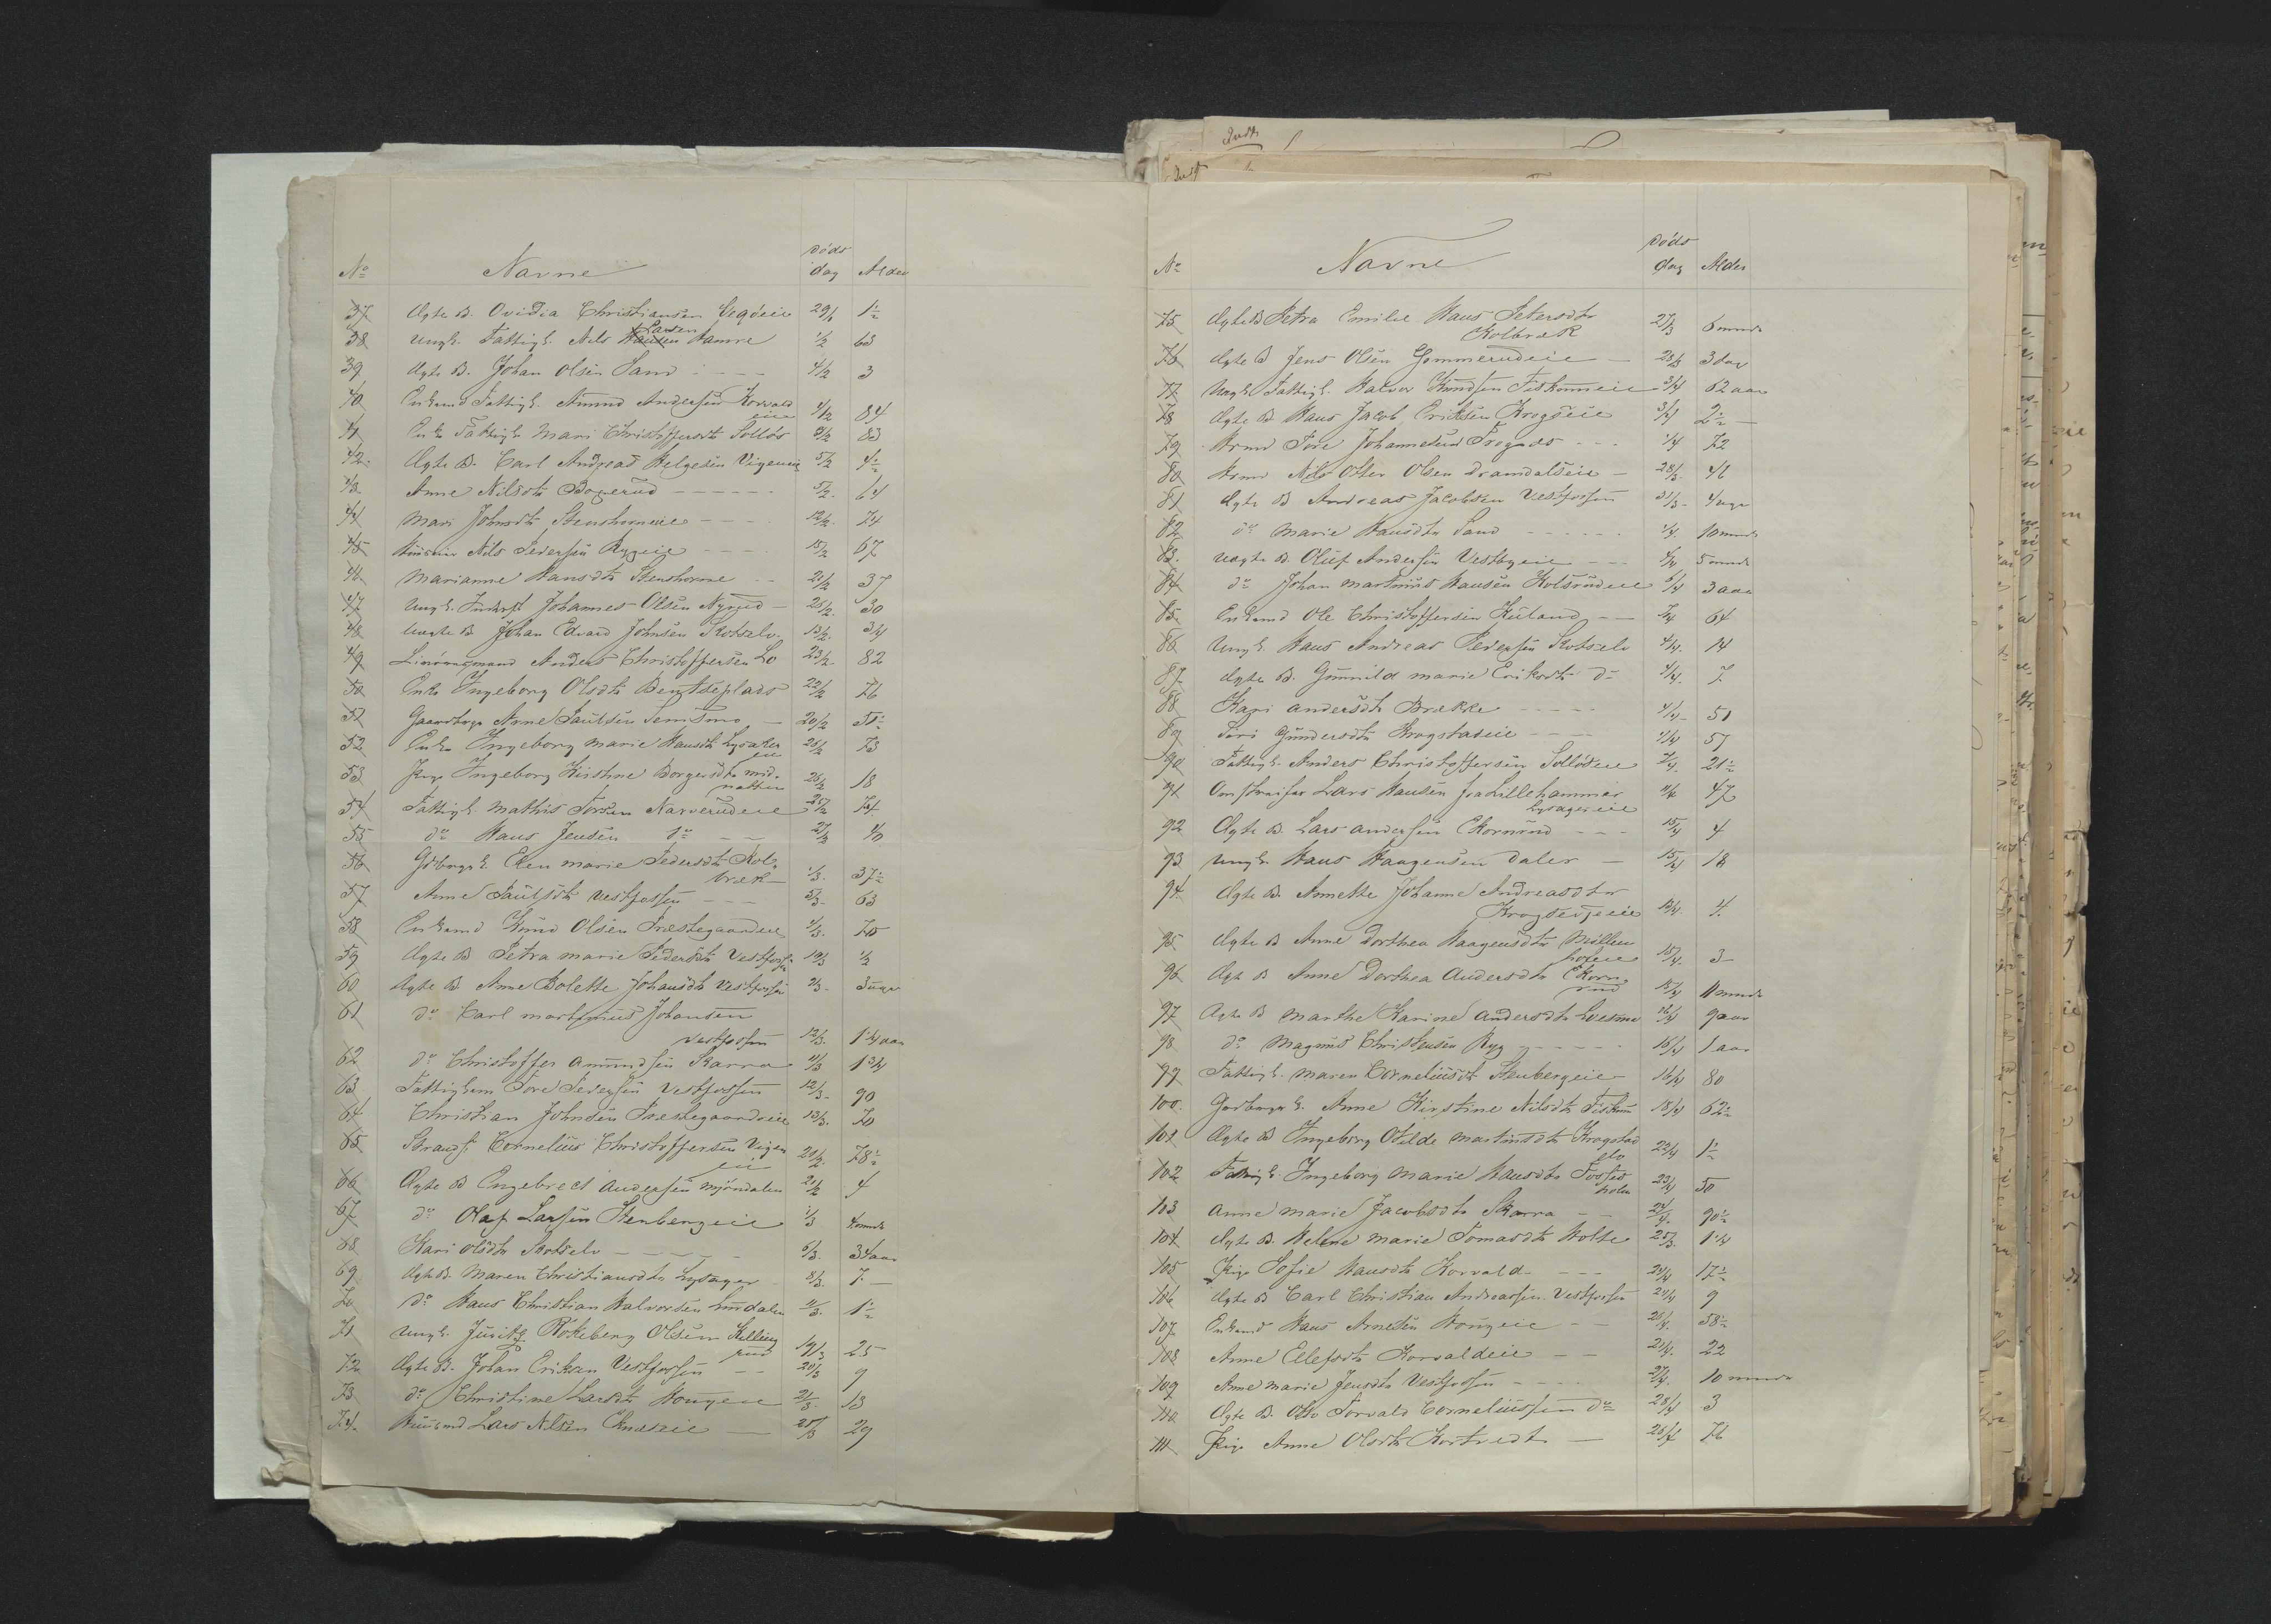 Døds
No Navne dag Alder
37 Ægte B. Ovidia Christiansen Vegøeie 29/1 1½
Larsen
38 Ungk. Fattigl. Nils Hansen Hamre 1/2 63
39 Ægte B. Johan Olsen Sand 4/2 3
40 Enkemd Fattigl. Amund Andersen Korvald 4/2 84
eie
41 Enke Fattigl. Mari Christoffersdt Solløs 2/2 83
42. Ægte B. Carl Andreas Helgesen Vigeneie 5/2 4½
43. Anne Nilsdt Bogerud 5/2. 64
44 Mari Johnsdt Stenshorneie 12/2. 74
45 Huusmr Nils Pedersen Rygeie 15/2 67
46 Marianne Hansdt Stenshorne 21/2 37
47 Ungk. Inderst Johannes Olsen Nyrud 25/2. 30
48 Uægte B Johan Edvard Johnsen Skotselv. 13/2. 3/4
49 Livøremand Anders Christoffersen Lo 23/2. 82
50 Enke Ingeborg Olsdt Bentseplads 22/2 76
51 Gaardbrgr Anne Paulsen Semsmo 20/2 51½
52 Enke Ingeborg Marie Hansdt Lysaker 26/2 73
eie
53 Pige Ingeborg Kirstine Borgersdt mid- 26/2 18
natten
54 Fattigl Mathis Torsen Narverudeie 25/2 74.
55 do Hans Jensen do 27/2 40
56 Gdbrgrk. Elen Marie Pedersdt Kol- 1/3. 37½
bræk
57 Anne Paulsdt Vestfossen 5/3. 63
58 Enkemd Knud Olsen Præstegaardeie 4/3. 75
59 Ægte B Petra Marie Pedersdt Vestfossen 10/3 ½
60 Ægte B Anne Bolette Johansdt Vestfossen 9/3. 3 uger
61 do Carl Marthinius Johansen
Vestfossen 12/3. 1¼ aar
62 do Christoffer Amundsen Skarra 11/3 1¾
63 Fattiglem Tore Pedersen Vestfossen 12/3. 90
64 Christian Johnsen Præstegaardeie 13/3. 70
65 Strandf. Cornelius Christoffersen Vigen 20/2. 78½
eie
66 Ægte B Engebrect Andersen Mjøndalen 21/2 4
67 do Olaf Larsen Stenbergeie 1/3 4 mndr
68 Kari Olsdtr Skotselv 6/3. 34 aar
69 Ægte B. Maren Christiansdtr Lysager 8/3. 7.
70 do Hans Christian Halvorsen Lundalen 11/3. 1½
71 Ungk. Rökeberg Olsen Kelling 19/3. 25
rud
72 Ægte B. Johan Eriksen Vestfossen 20/3 9
73 do Christine Larsdt Hougen 21/3. 13
74. Huusmd Lars Nilsen 25/3 29
Døds
No Navne dag Alder
75 Ægte B Petra Emilie Hans Petersdtr 27/3 6 mndr
Kolbræk
76 Ægte B Jens Olsen Gommerudeie 28/3 3 dag
77 Ungk Fattigl. Halvor Knudsen Fiskumeie 3/4 62 aar
78 Ægte B Hans Jacob Eriksen Krogseie 3/4 2½
79 Krmd Tore Johannesen 1/4 72
80 Krmd Nils Otter Olsen Dramdalseie 28/3. 46
81 Ægte B Andreas Jacobsen Vestfossen 31/3 4 uger
82 do Marie Hansdtr Sand 1/4. 10 mndr
83. Uægte B. Oluf Andersen Vestbyeie 4/4 5 mndr
84 do Johan Martinius Hansen Kolsrudeie 6/4 3 aar
85. Enkemd Ole Christoffersen Kuland 7/4 64
86 Ungk. Hans Andreas Pedersen Skotselv 4/4. 14
87. Ægte B. Gunnild Marie Eriksdt do 4/4. 7.
88 Kari Andersdt Brække 4/4 51
89 Siri Gundersdt Krogstadeie 1/4 57
90 Fattigl. Anders Christoffersen Solløseie 7/4. 21½
91 Omstreifer Lars Hansen fra Lillehammer 11/4 47
Lysagereie
92 Ægte B. Lars Andersen Ekornrud 15/4 4
93 Ungk Hans Haagensen Daler 15/4 18
94. Ægte B. Annette Johanne Andreasdtr
Krogseieie 13/4. 4.
95 Ægte B Anne Dorthea Haagensdtr Møllen 15/4. 3
hofeie
96 Ægt B Anne Dorthea Andersdtr Ekorn- 15/4 11 mndr
rud
97 Ægt B Marthe Karine Andersdtr Loesmo 16/4 9 aar
98 do Magnus Christensen Ryg 16/4 1 aar
99 Fattigl. Maren Corneliusdt Stenbergeie 16/4 80
100. Gardbrgr k. Anne Kirstine Nilsdt Fiskum 18/4 62½
101 Ægte B Ingeborg Otilde Martinsdtr Krogstad 22/4 1½
elv
102 Fattigl. Ingeborg Marie Hansdtr Fosses 23/4 50
holm
103 Anne Marie Jacobsdtr Skarra 22/4. 90½
104 Ægte B. Helene Marie Tomasdtr Holte 25/3. 1¼
105 Pige Sofie Hansdt Korvald 24/4 17½
106 Ægte B Carl Christian Andreassen Vestfossen 24/4 9
107. Enkemd Hans Arnesen Hougeie 26/4. 58½
108 Anne Ellefsdt Korvaldeie 21/4. 22
109 Anne Marie Jensdtr Vestfossen 27/4. 10 mndr
110 Ægte B. Otto Torvald Corneliussen do 28/4 3
111 Pige Anne Olsdtr Hortvedt 26/4 76